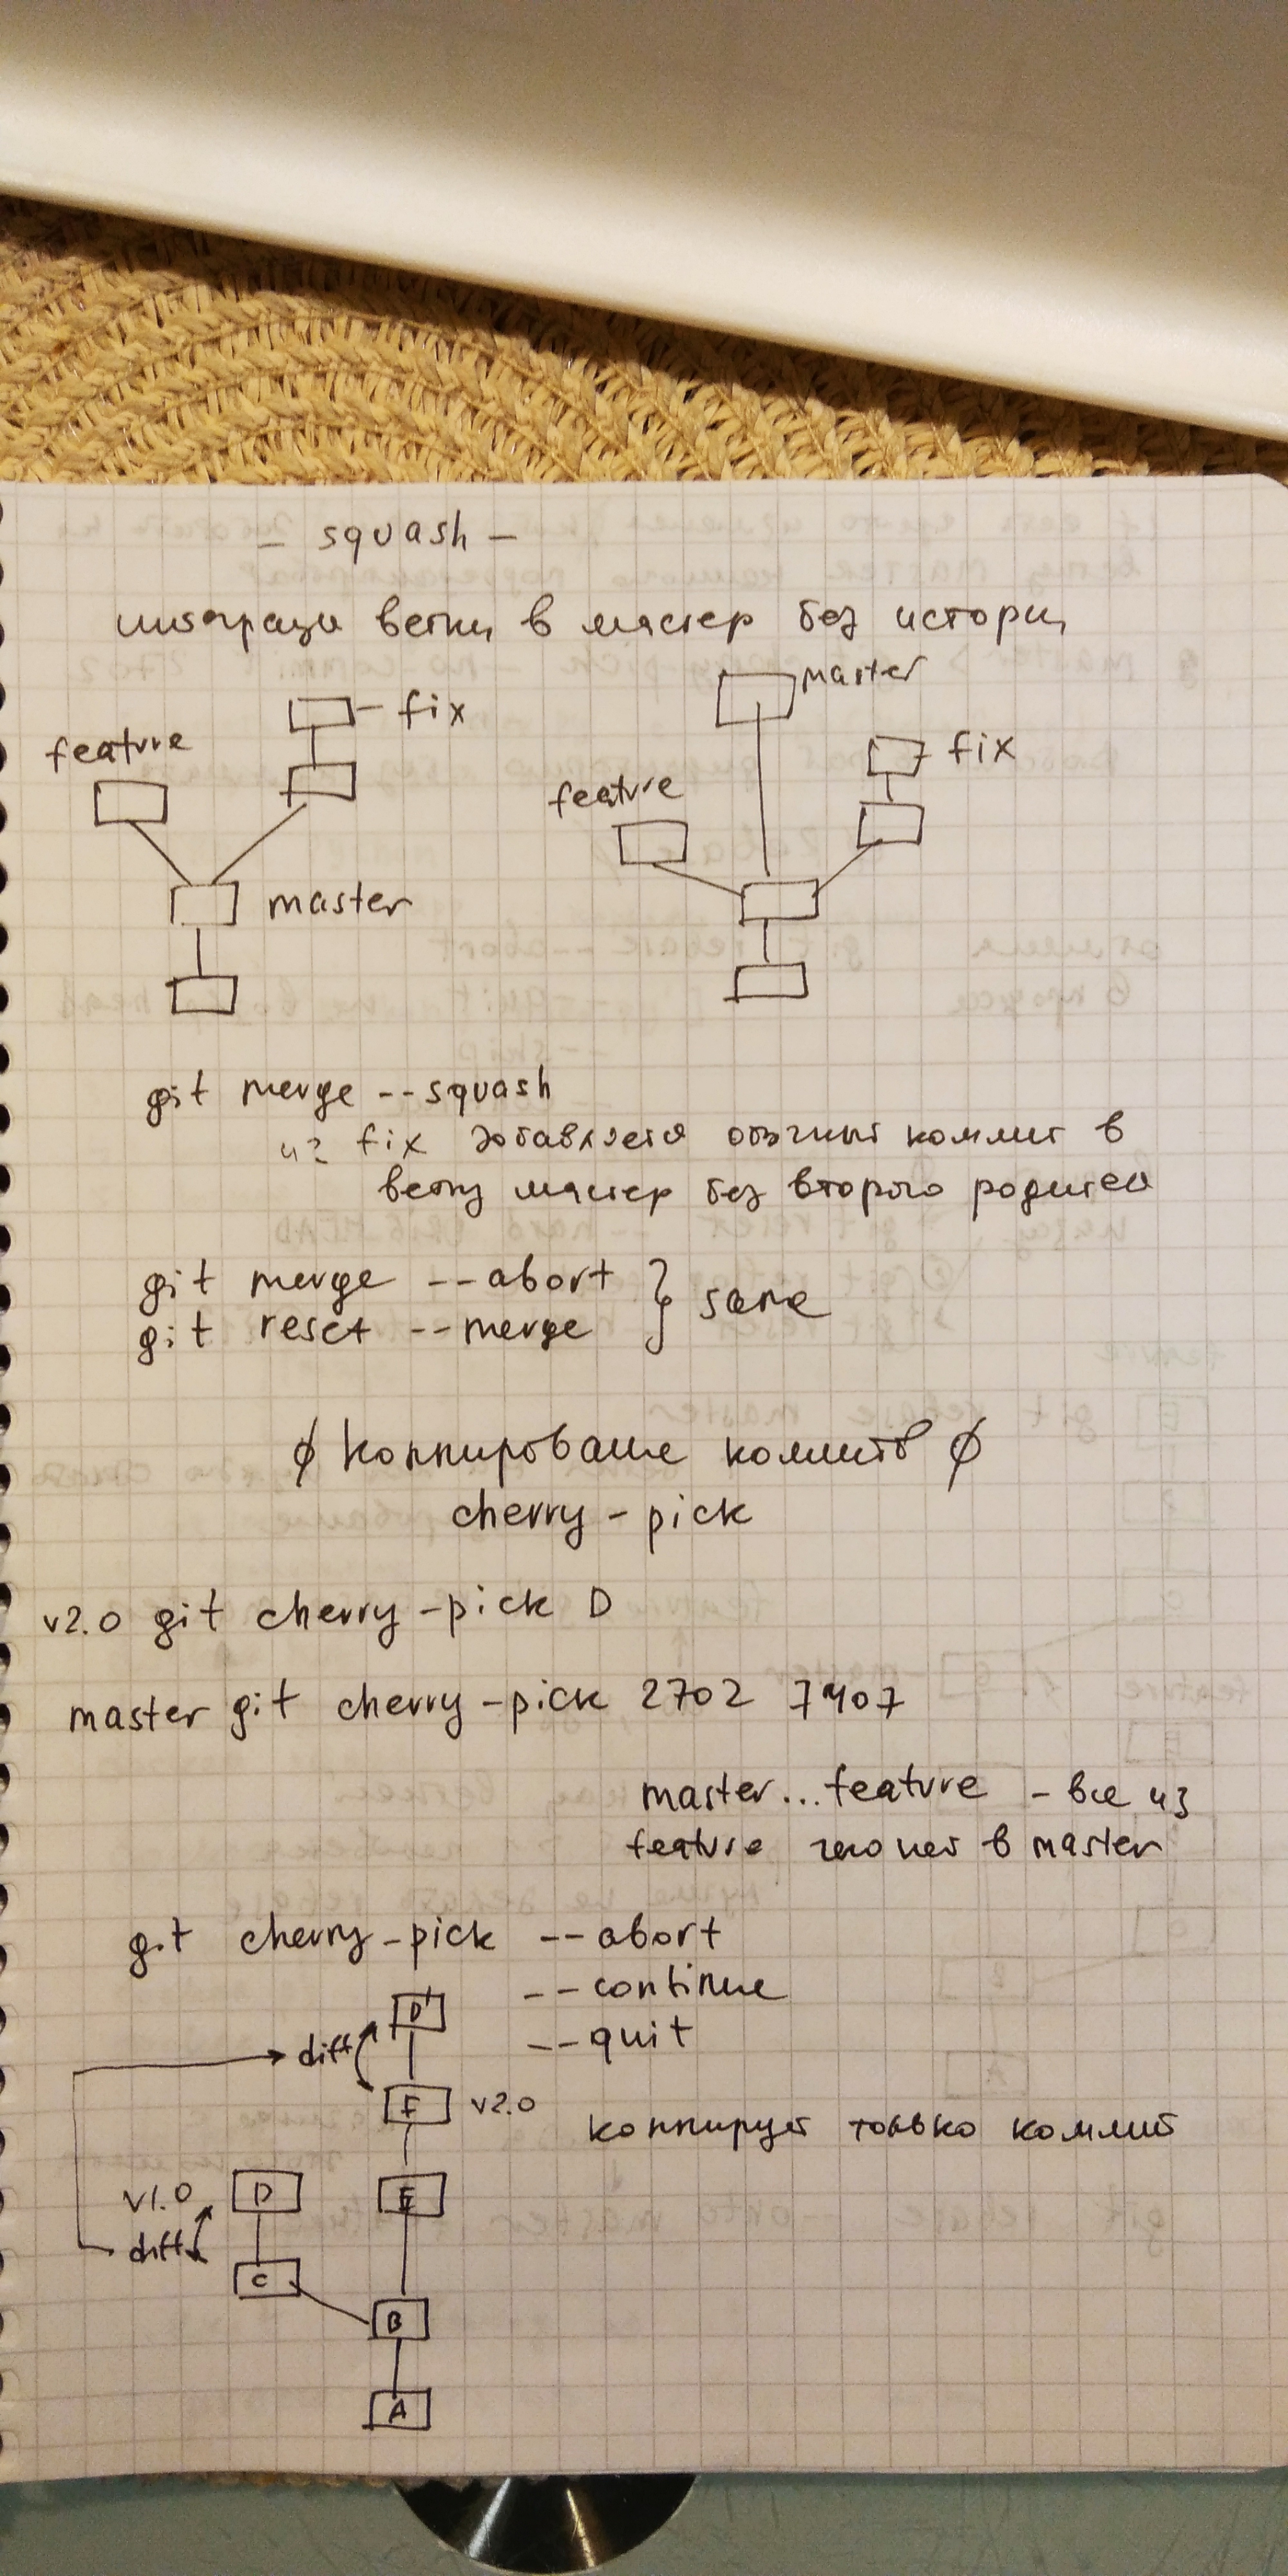 – squash –
интеграци ветки в мастер без истории
fix
feature
master
master
fix
feature
git merge --squash
из fix добавляется обычный коммит в
ветку мастер без второго родителя
git merge --abort
git reset --merge
} same
Коппирование коммитов
cherry-pick
v2.0 git cherry-pick D
master git cherry-pick 2702 7407
master...feature – все из
feature чего нет в master
git cherry-pick --abort
--continue
--quit
D'
diff
F v2.0
коппирует только коммит
v1.0 D E
diff
C
B
A